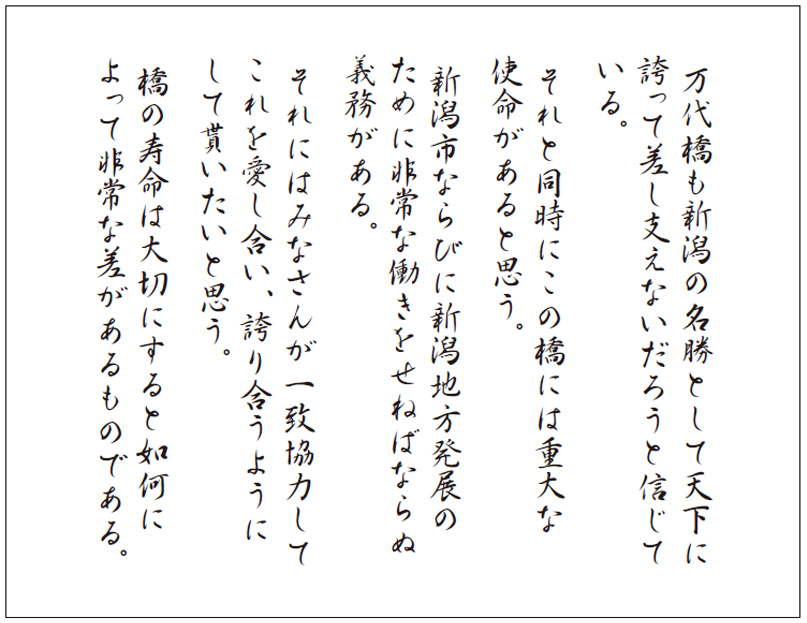 万代橋も新潟の名勝として天下に
誇って差し支えないだろうと信じて
いる。
それと同時にこの橋には重大な
使命があると思う。
新潟市ならびに新潟地方発展の
ために非常な働きをせねばならぬ
義務がある。
それにはみなさんが一致協力して
これを愛し合い、誇り合うように
して貰いたいと思う。
橋の寿命は大切にすると如何に
よって非常な差があるものである。